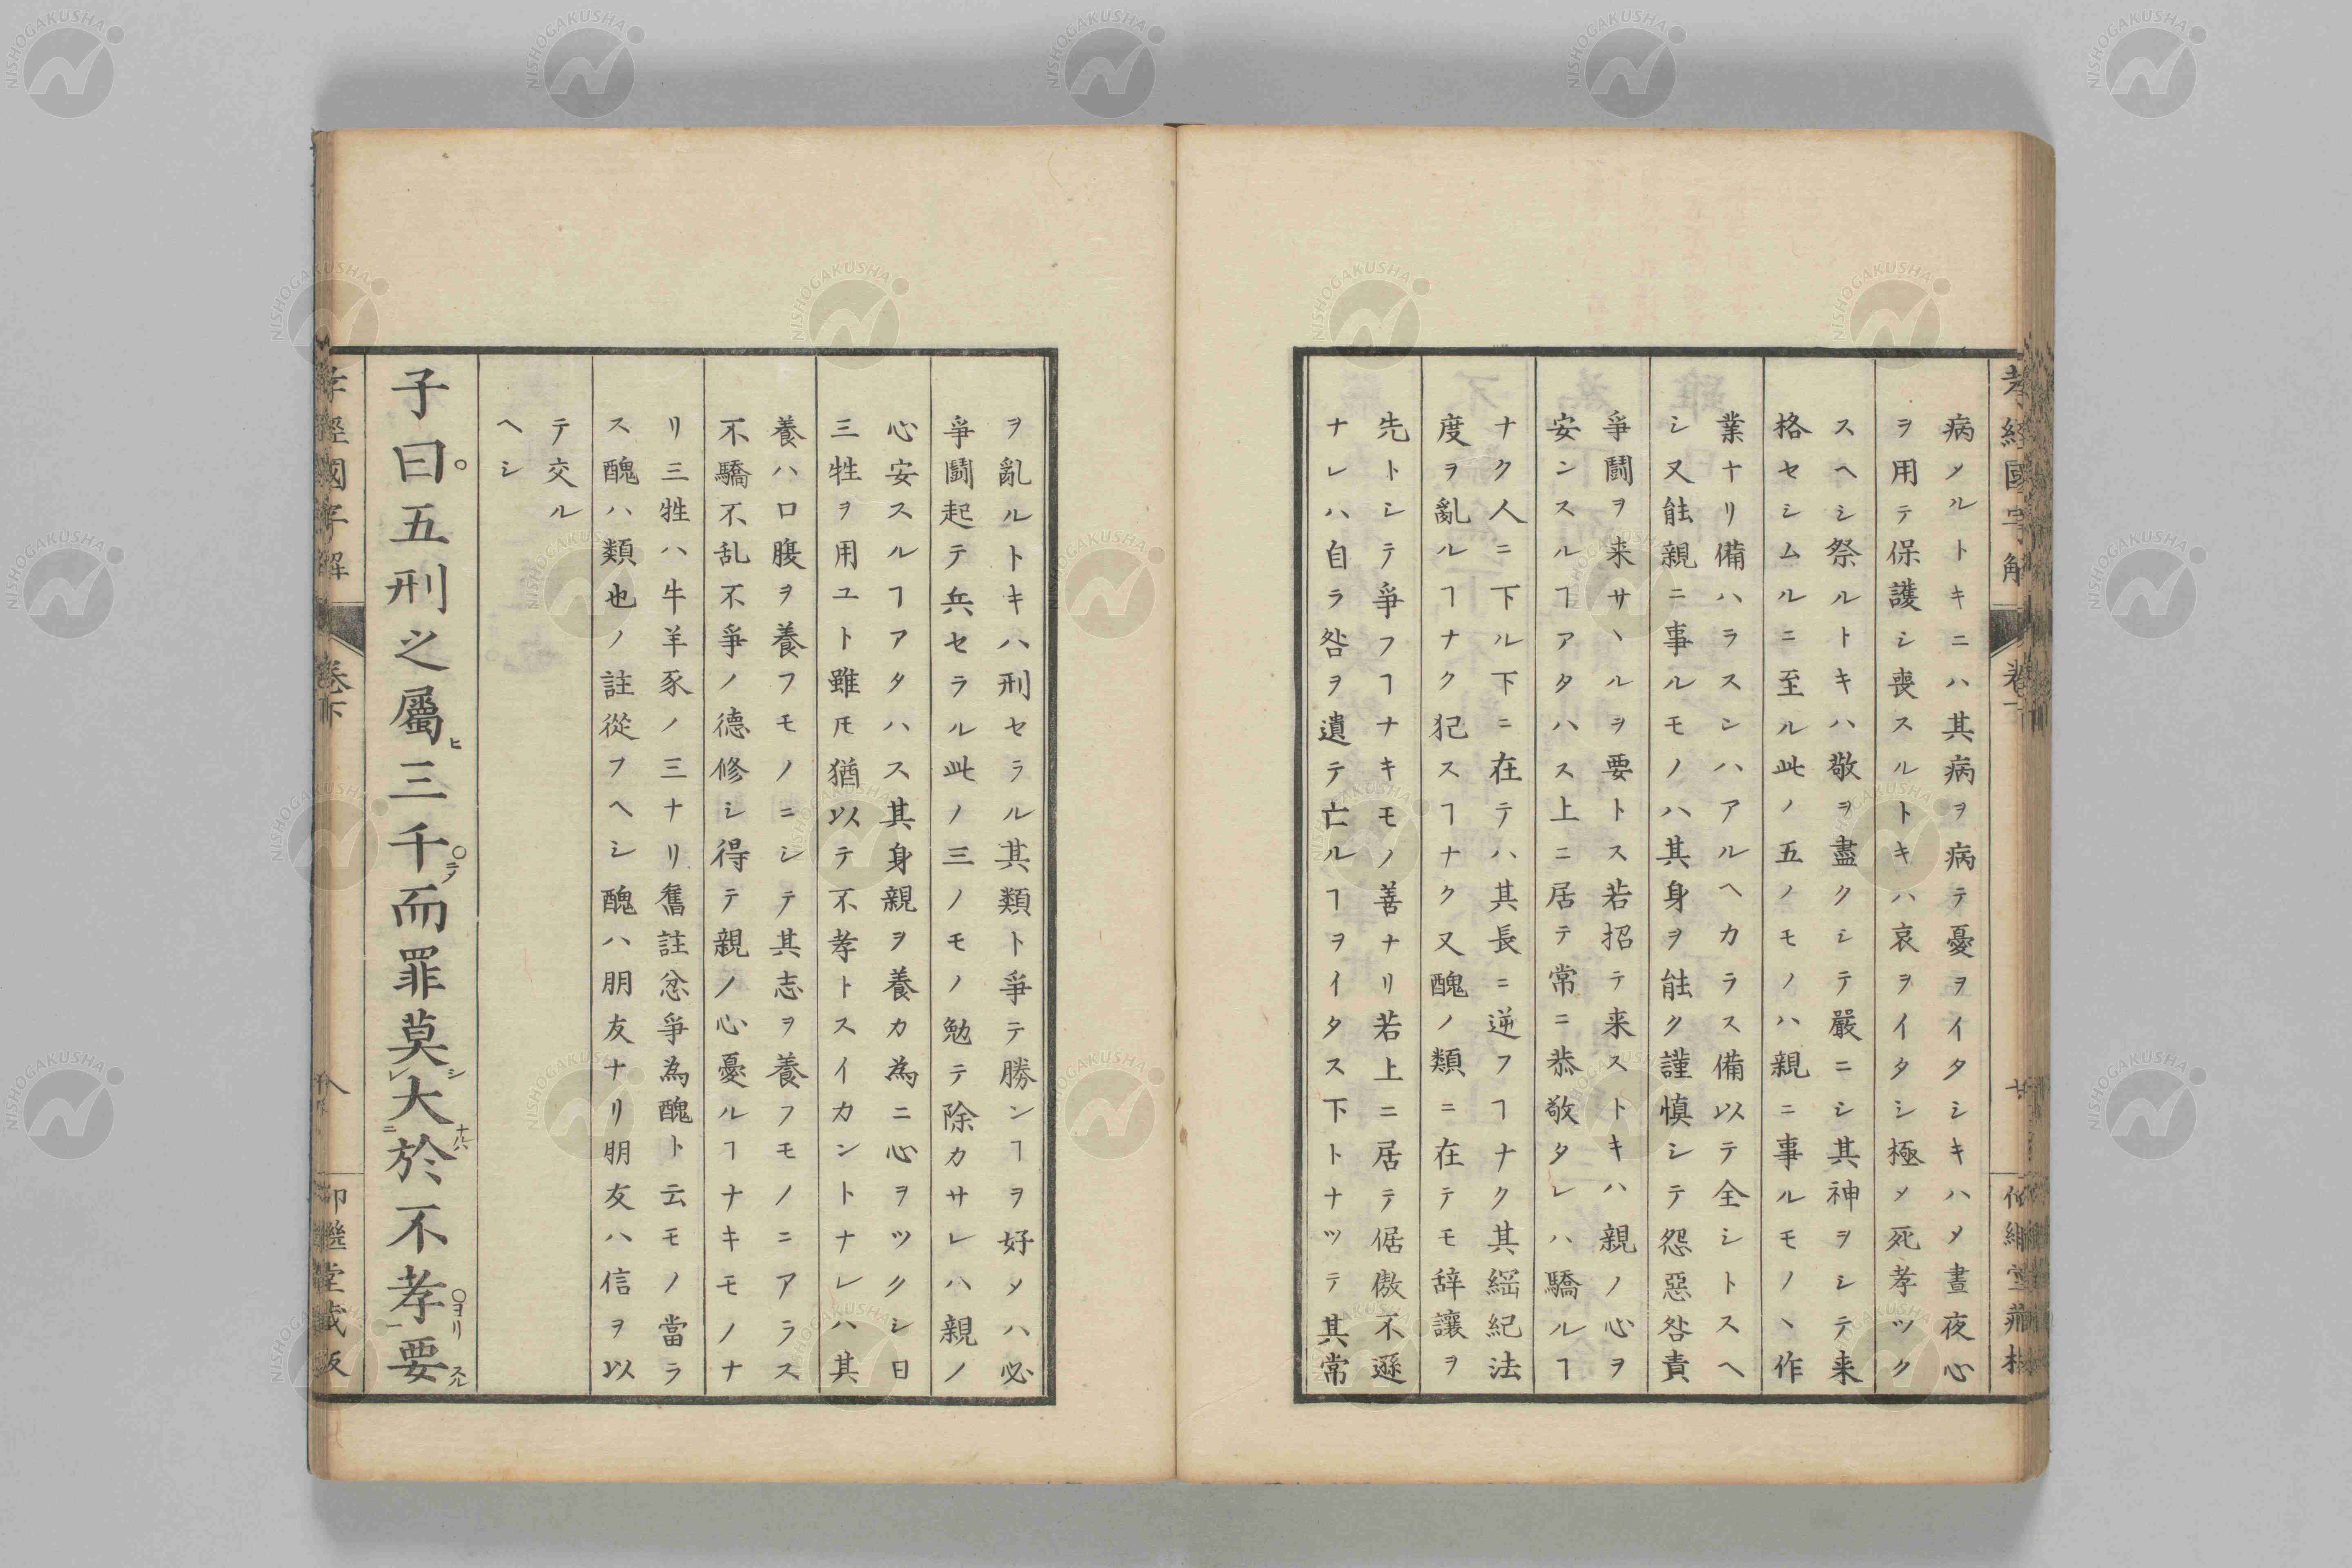 病メルトキニハ其病ヲ病テ憂ヲイタシキハメ晝夜心
ヲ用テ保護シ喪スルトキハ哀ヲイタシ極メ死孝ツク
スヘシ祭ルトキハ敬ヲ盡クシテ嚴ニシ其神ヲシテ来
格セシムルニ至ル此ノ五ノモノハ親ニ事ルモノヽ作
業ナリ備ハラスンハアルヘカラス備以テ全シトスヘ
シ又能親ニ事ルモノハ其身ヲ能ク謹慎シテ怨惡咎責
爭鬪ヲ来サヽルヲ要トス若招テ来ストキハ親ノ心ヲ
安ンスルヿアタハス上ニ居テ常ニ恭敬タレハ驕ルヿ
ナク人ニ下ル下ニ在テハ其長ニ逆フヿナク其綱紀法
度ヲ亂ルヿナク犯スヿナク又醜ノ類ニ在テモ辞讓ヲ
先トシテ爭フヿナキモノ善ナリ若上ニ居テ倨傲不遜
ナレハ自ラ咎ヲ遺テ亡ルヿヲイタス下トナツテ其常
ヲ亂ルトキハ刑セラル其類ト爭テ勝ンヿヲ好メハ必
爭鬪起テ兵セラル此ノ三ノモノ勉テ除カサレハ親ノ
心安スルヿアタハス其身親ヲ養カ為ニ心ヲツクシ日
三牲ヲ用ユト雖𪜈猶以テ不孝トスイカントナレハ其
養ハ口腹ヲ養フモノニシテ其志ヲ養フモノニアラス
不驕不乱不爭ノ德修シ得テ親ノ心憂ルヿナキモノナ
リ三牲ハ牛羊豕ノ三ナリ舊註忿爭為醜ト云モノ當ラ
ス醜ハ類也ノ註從フヘシ醜ハ朋友ナリ朋友ハ信ヲ以
テ交ル
ヘシ
子曰五刑之屬三千而罪莫大於不孝要
孝經國字解
卷下